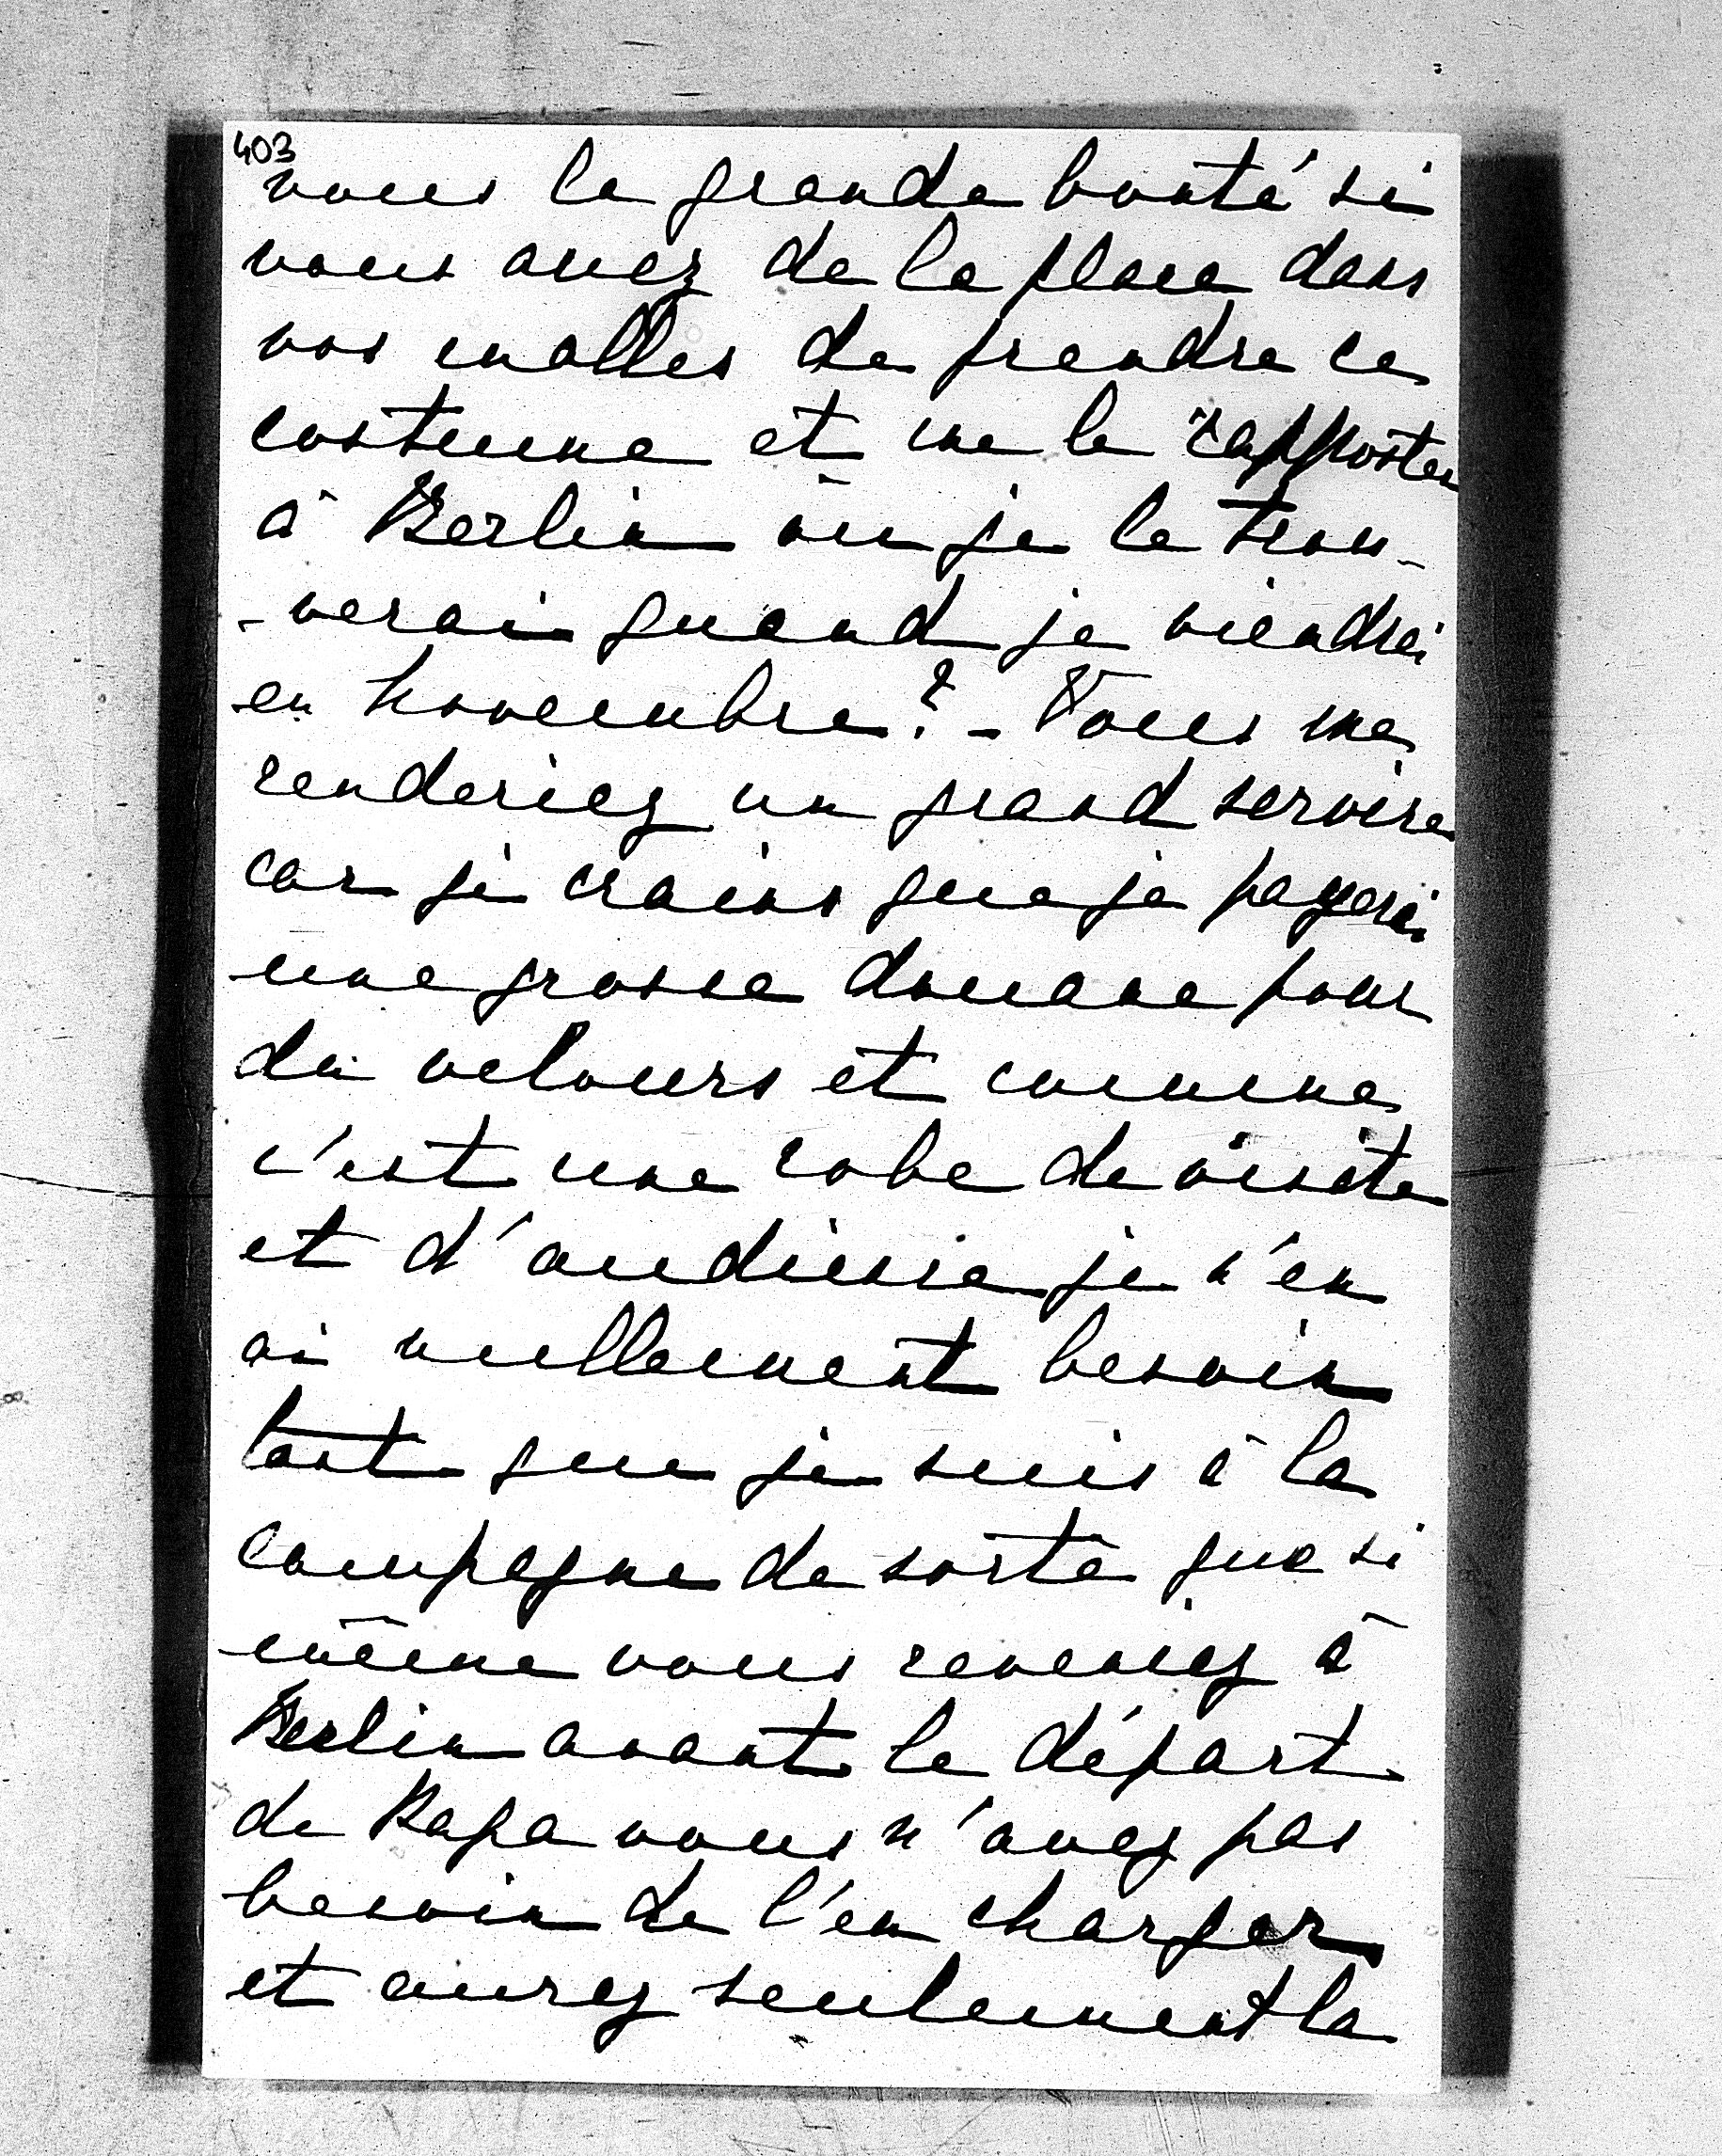 403
vous la grande bonté si
vous avez de la place dans
vos malles de prendre ce
costume et me le rapporter
à Berlin où je le trou-
-verai quand je viendrai
en Novembre? - Vous me
renderiez un grand service
car je crains que je payerai
une grosse douane pour
du velours et comme
c'est une robe de visite
et d'audience je n'en
ai nullement besoin
tant que je suis à la
campagne de sorte que si
même vous reveniez à
Berlin avant le départ
de Papa vous n'avez pas
besoin de l'en charger
et aurez seulement la